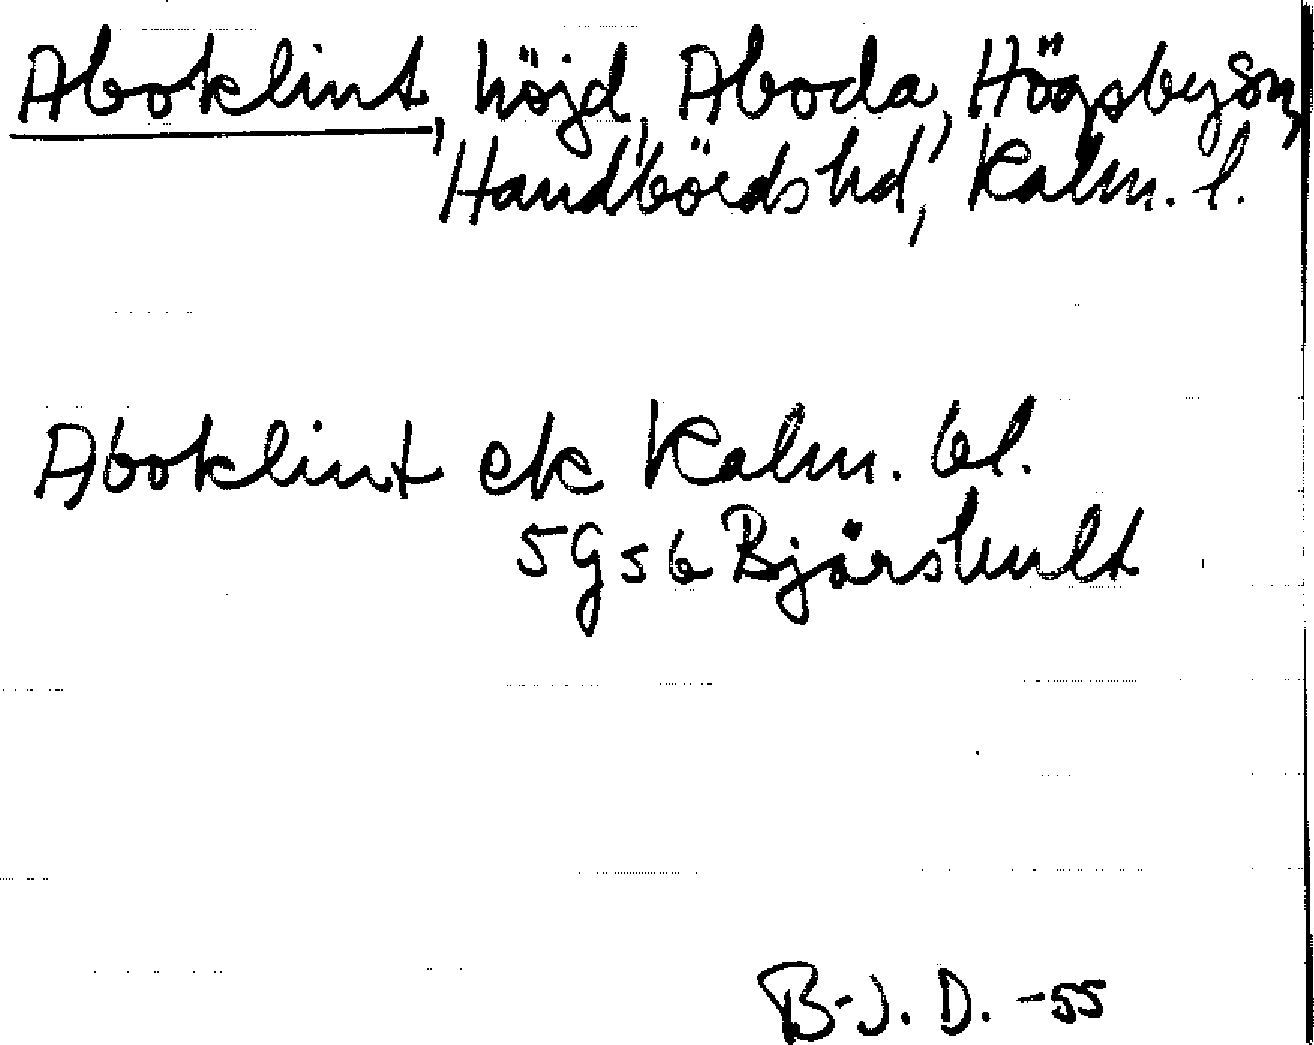 Aboklint, höjd, Aboda, Högsby sn,
Handbörds hd, Kalm. l.
Aboklint ek Kalm. bl.
5G5b Bjärshult
B-J. D. -55